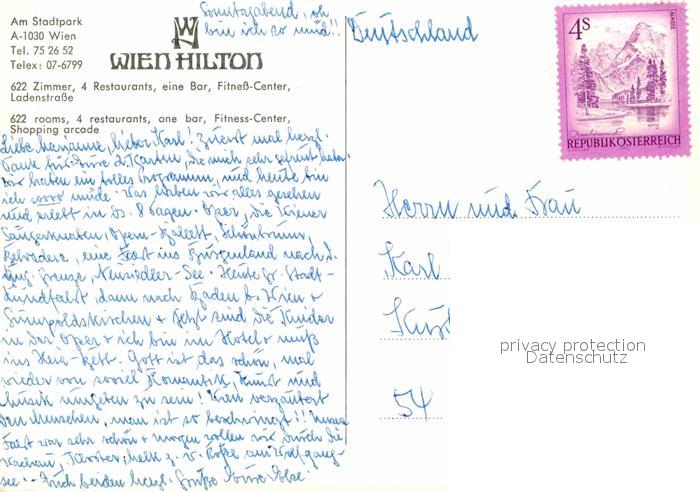 Am Stadtpark
A-1030 Wien
Tel. 75 26 52
Telex: 07-6799
WIEN HILTON
622 Zimmer, 4 Restaurants, eine Bar, Fitneß-Center,
Ladenstraße
622 rooms, 4 restaurants, one bar, Fitness-Center,
Shopping arcade
Sonntagabend, ich
bin ich so müd!!
Liebe Marianne, lieber Karl! Zuerst mal herzl.
Dank für Eure 2 Karten, die mich sehr gefreut haben
Wir haben ein tolles Programm, und heute bin
ich müde. Was haben wir alles gesehen
und erlebt in 8 Tagen. Oper, die Wiener
Sängerknaben, Opern-Ballett, Schönbrunn,
Belvedere, eine Fahrt ins Burgenland nach d.
ung. Grenze, Neusiedler-See. Heute gr. Stadt-
rundfahrt, dann nach Baden b. Wien +
Gumpoldskirchen + jetzt sind die Kinder
in der Oper + ich bin im Hotel + muß
ins Heia-Bett. Gott ist das schön, mal
wieder von soviel Romantik, Kunst und
Musik umgeben zu sein! Wien verzaubert
den Menschen, man ist so beschwingt!! Unsere
Fahrt war sehr schön + morgen wollen wir durch die
Wachau, z. w. am Wolfgang-
see. Euch beiden herzl. Grüße Eure
Deutschland
4 S
REPUBLIK ÖSTERREICH
Herrn und Frau
Karl
54
privacy protection
Datenschutz